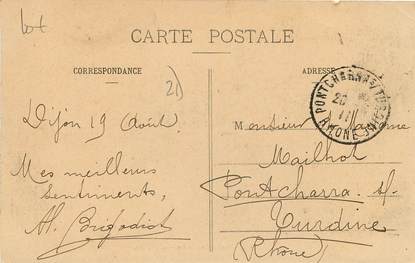 lot
CARTE POSTALE
CORRESPONDANCE
ADRESSE
21
PONTCHARRA S/TURDINE
20
11
RHONE
Dijon 19 Août
Mes meilleurs
Sentiments,
Monsieur
Mailhot
Pontcharra s/.
Turdine
(Rhône)